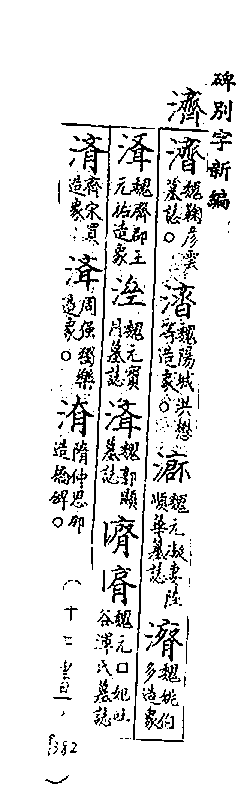 碑別字新編
濟
濟 魏鞠彥雲墓誌。 濟 魏陽城洪懋等造象。 魏元凝妻陸順華墓誌 魏姚伯多造象
魏齊郡王元祐造象 魏元寶月墓誌 魏郭顯墓誌 魏元□妃吐谷渾氏墓誌
済 齊宋買造象 周強獨樂造象。 隋仲思那造橋碑。
(十七畫,
P.382
)